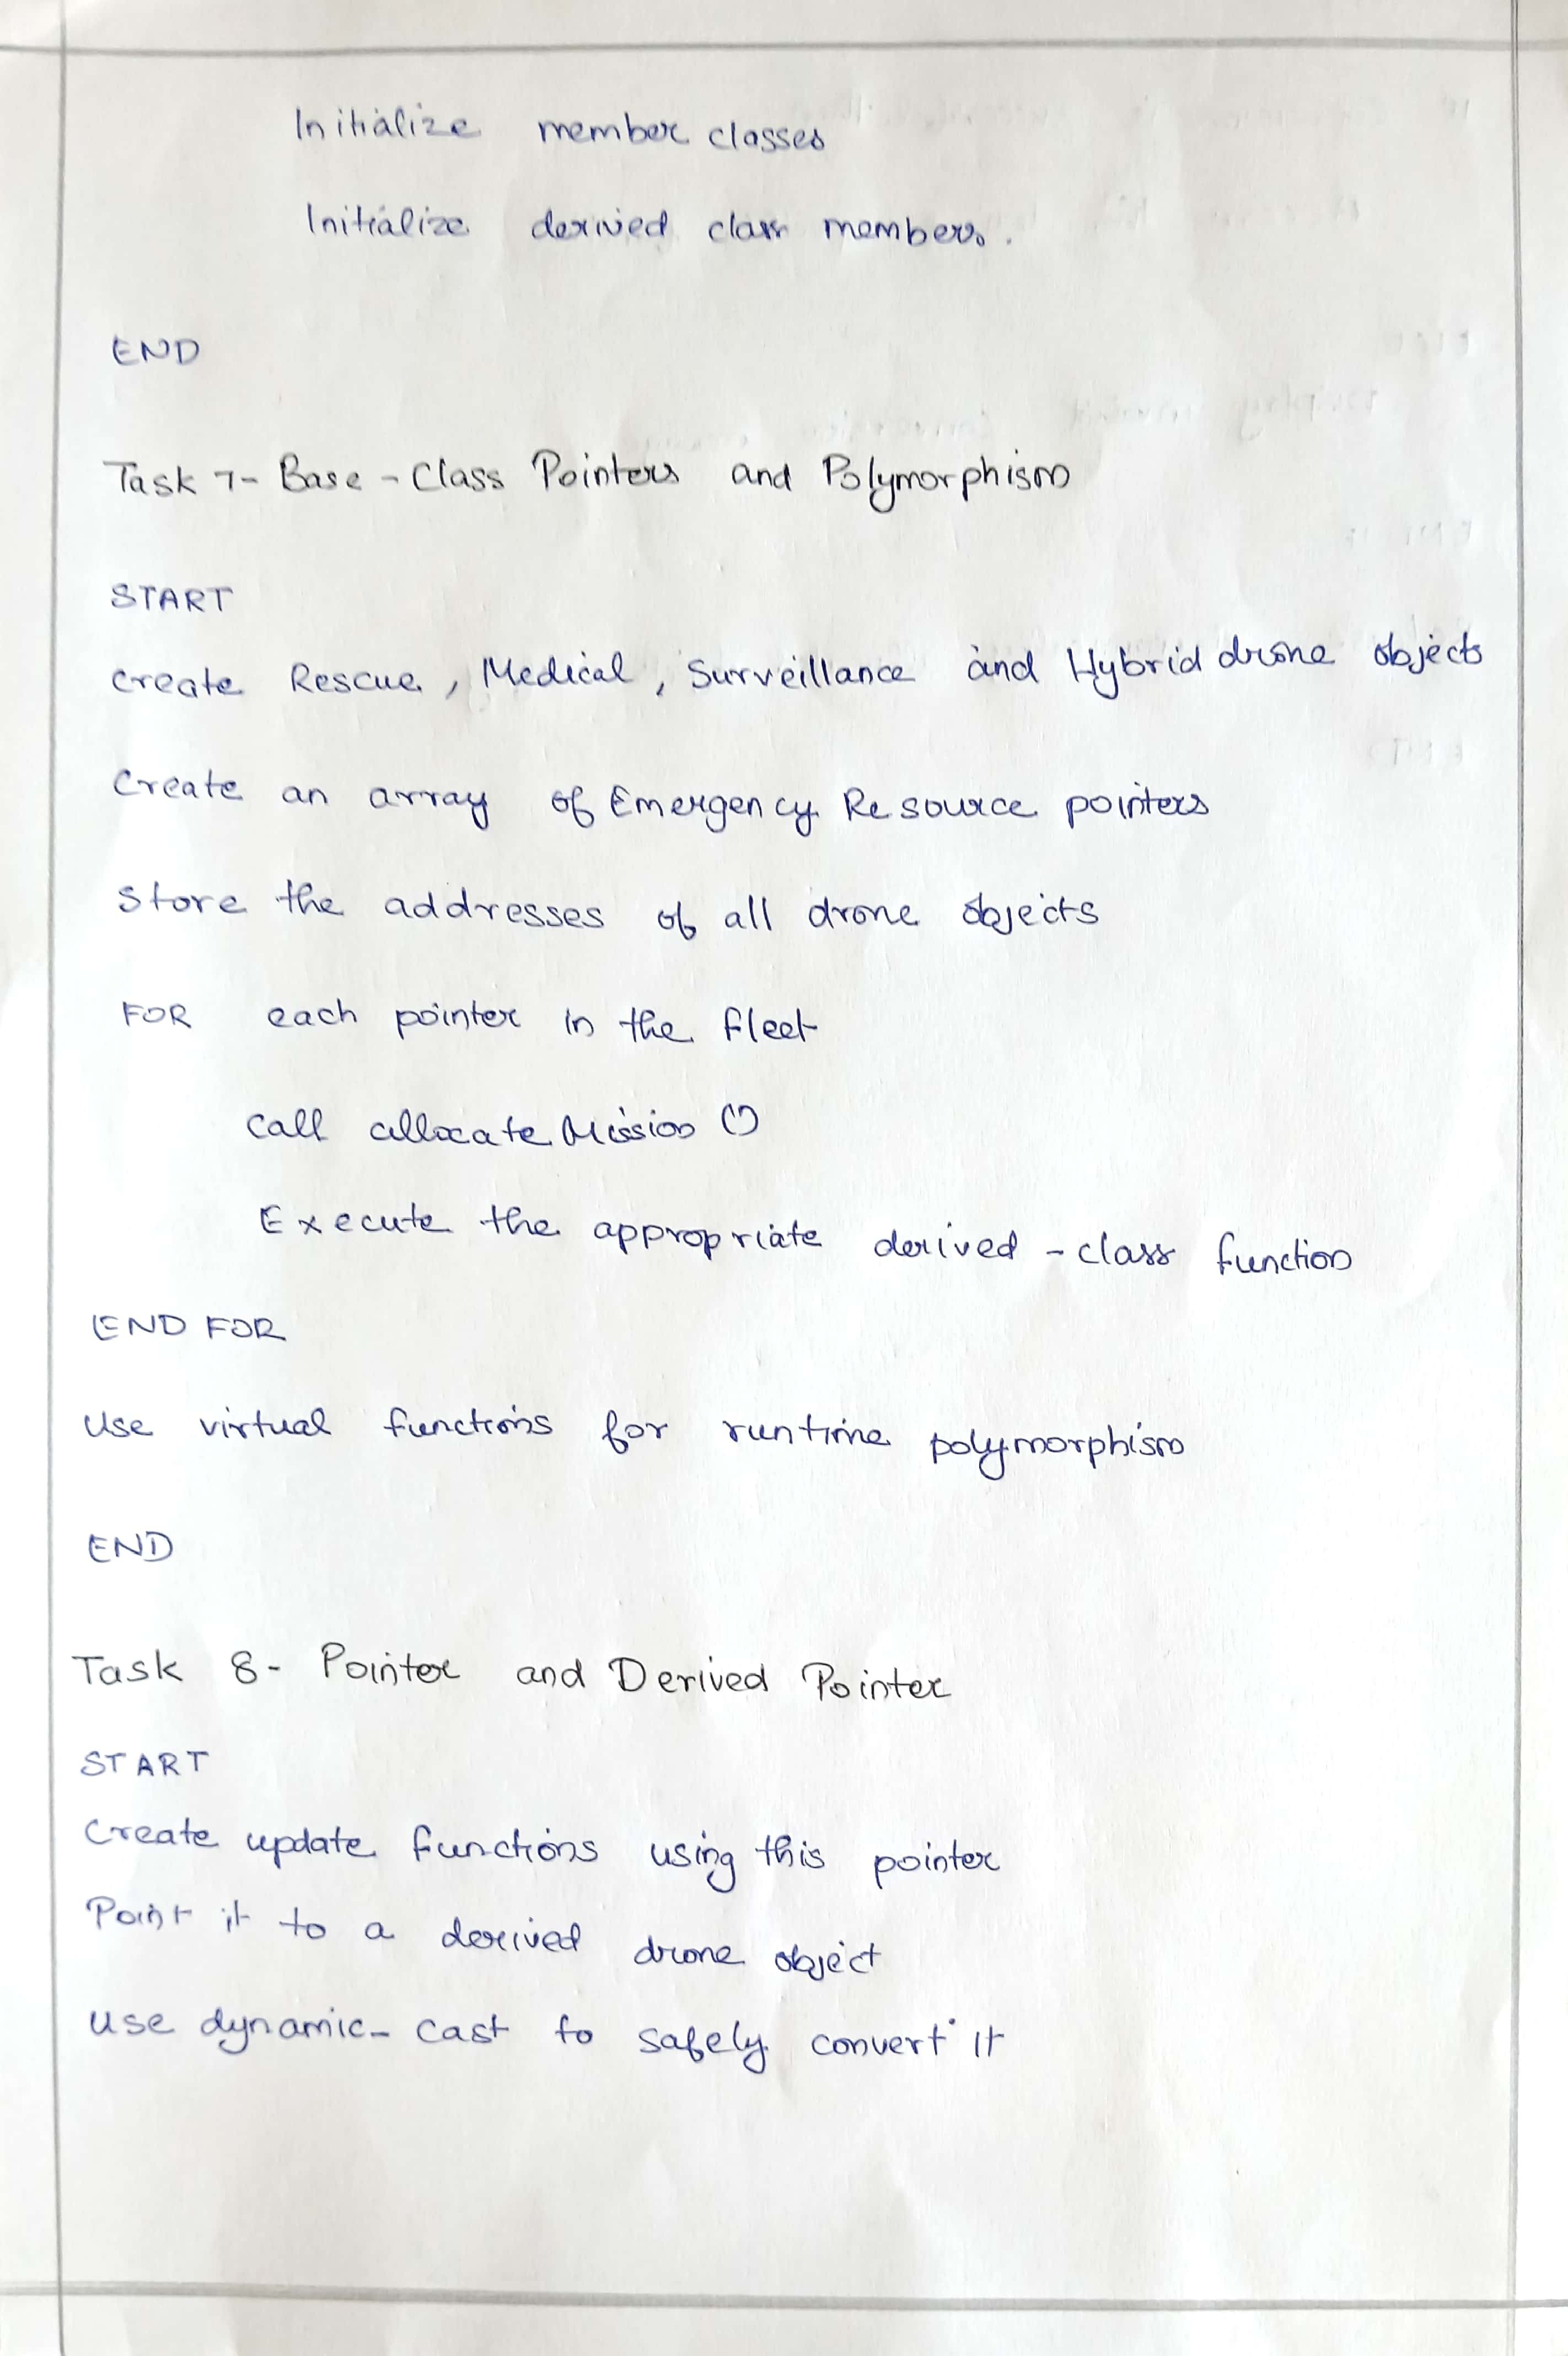 Initialize member classes
Initialize derived class members.
END
Task 7- Base-Class Pointers and Polymorphism
START
create Rescue, Medical, Surveillance and Hybrid drone objects
Create an array of Emergency Resource pointers
Store the addresses of all drone objects
FOR each pointer in the fleet
call allocate Mission ()
Execute the appropriate derived-class function
END FOR
Use virtual functions for runtime polymorphism
END
Task 8- Pointer and Derived Pointer
START
Create update functions using this pointer
Point it to a derived drone object
Use dynamic_cast to safely convert it